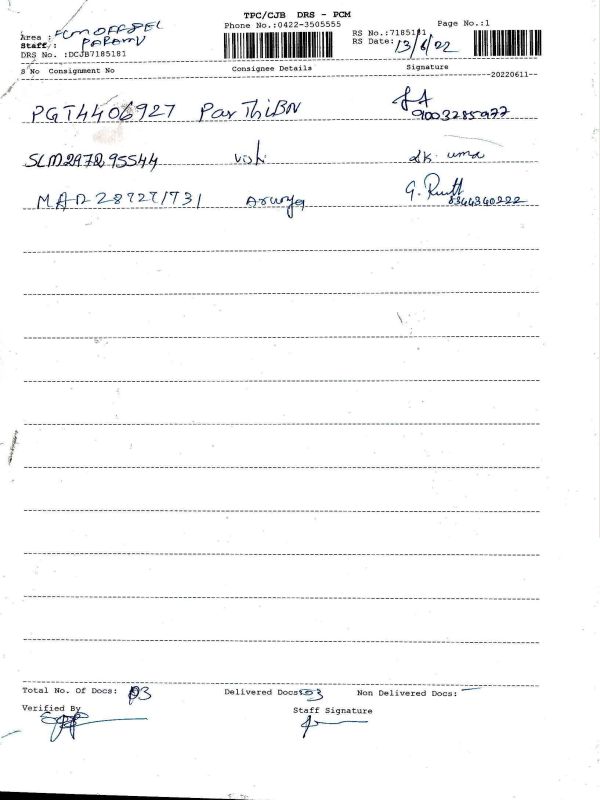 TPC/CJB DRS - PCM
Phone No.:0422-3505555
Page No.:1
Area : PCM OFFSPEL
RS No.:7185181
Staff : PARAMU
RS Date: 13/6/22
DRS No. :DCJB7185181
S No Consignment No Consignee Details Signature
--20220611--
PGT4406927 ParThiBN
9003285977
SLM297295544 Vishi Sk. uma
MAD287271731
8344340222
Total No. Of Docs: 03 Delivered Docs: 03 Non Delivered Docs: —
Verified By Staff Signature